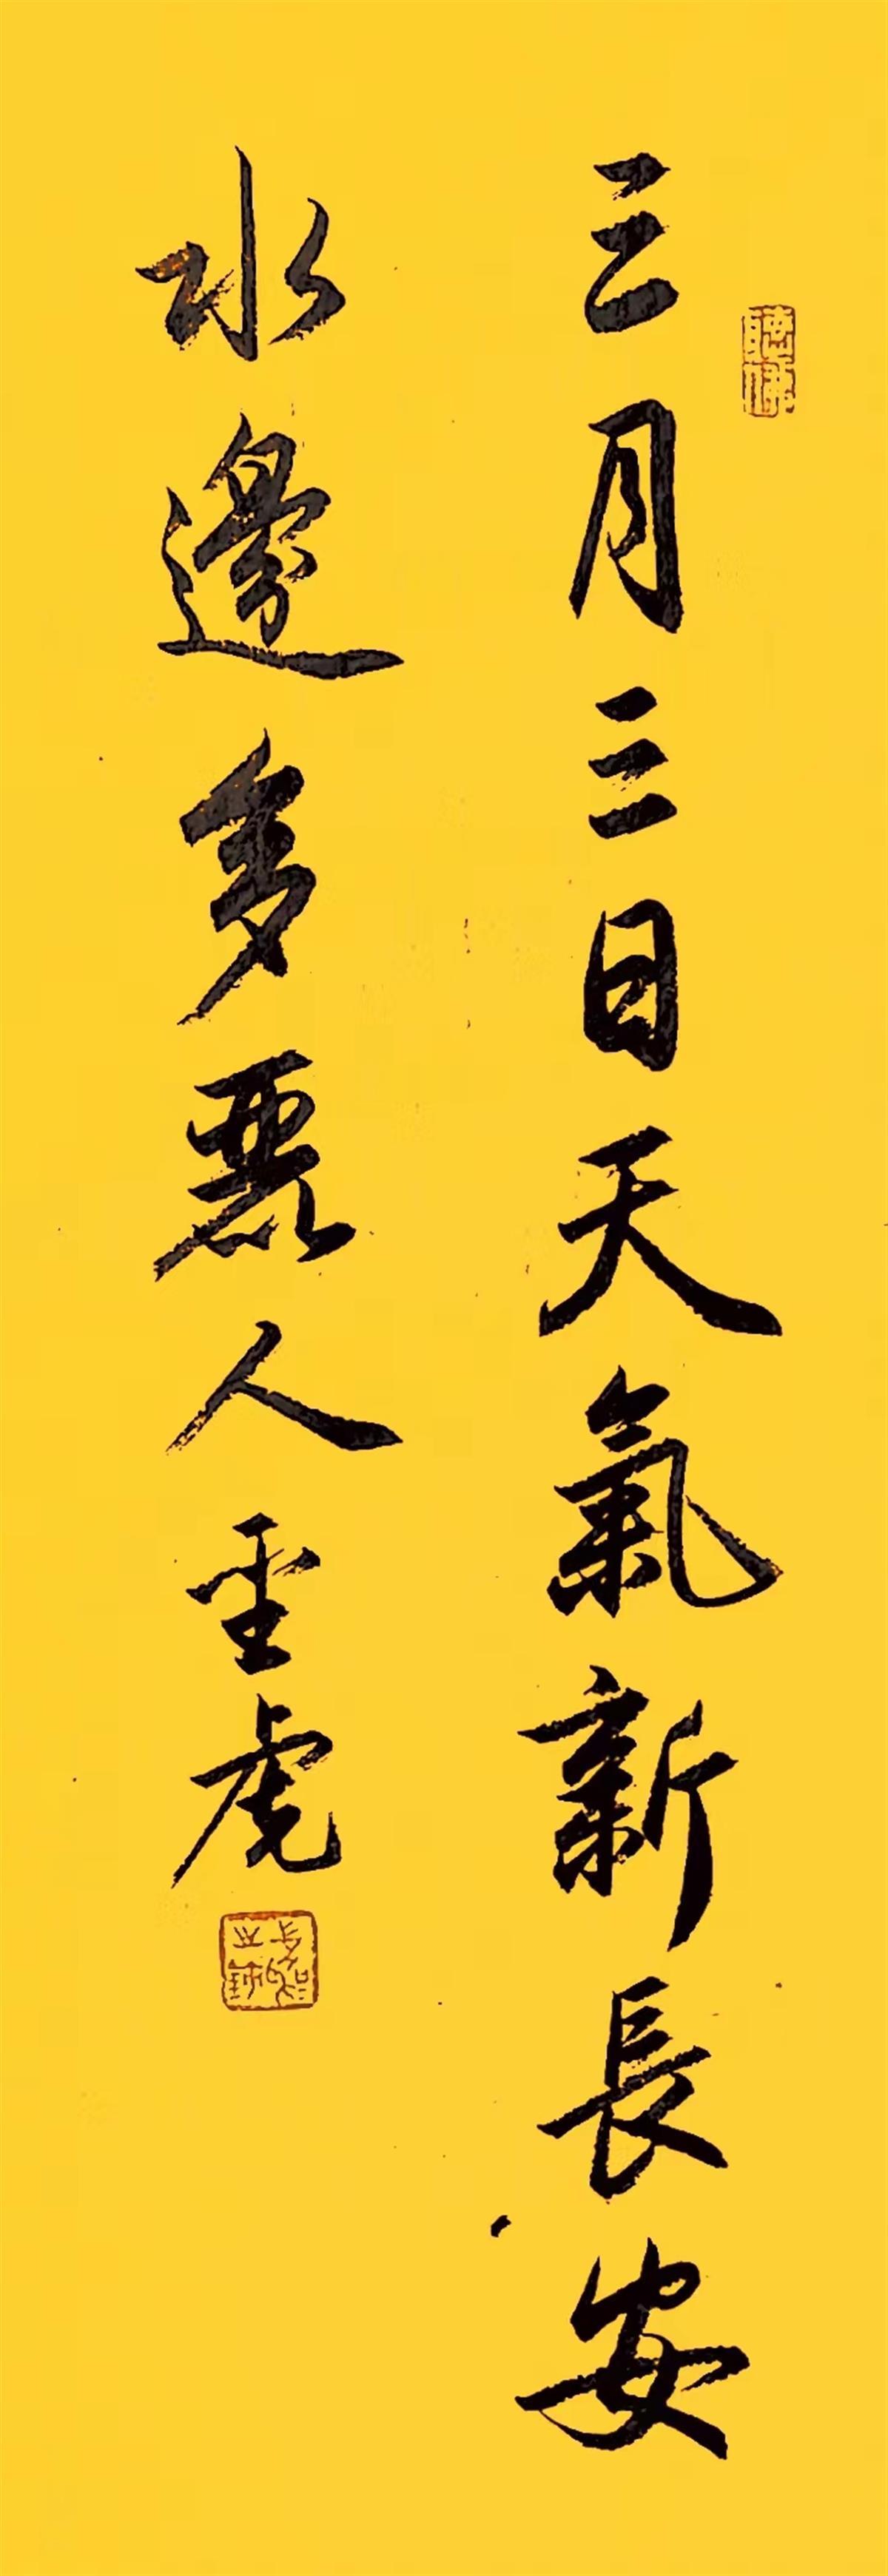 三月三日天氣新長安
水邊多麗人 虎